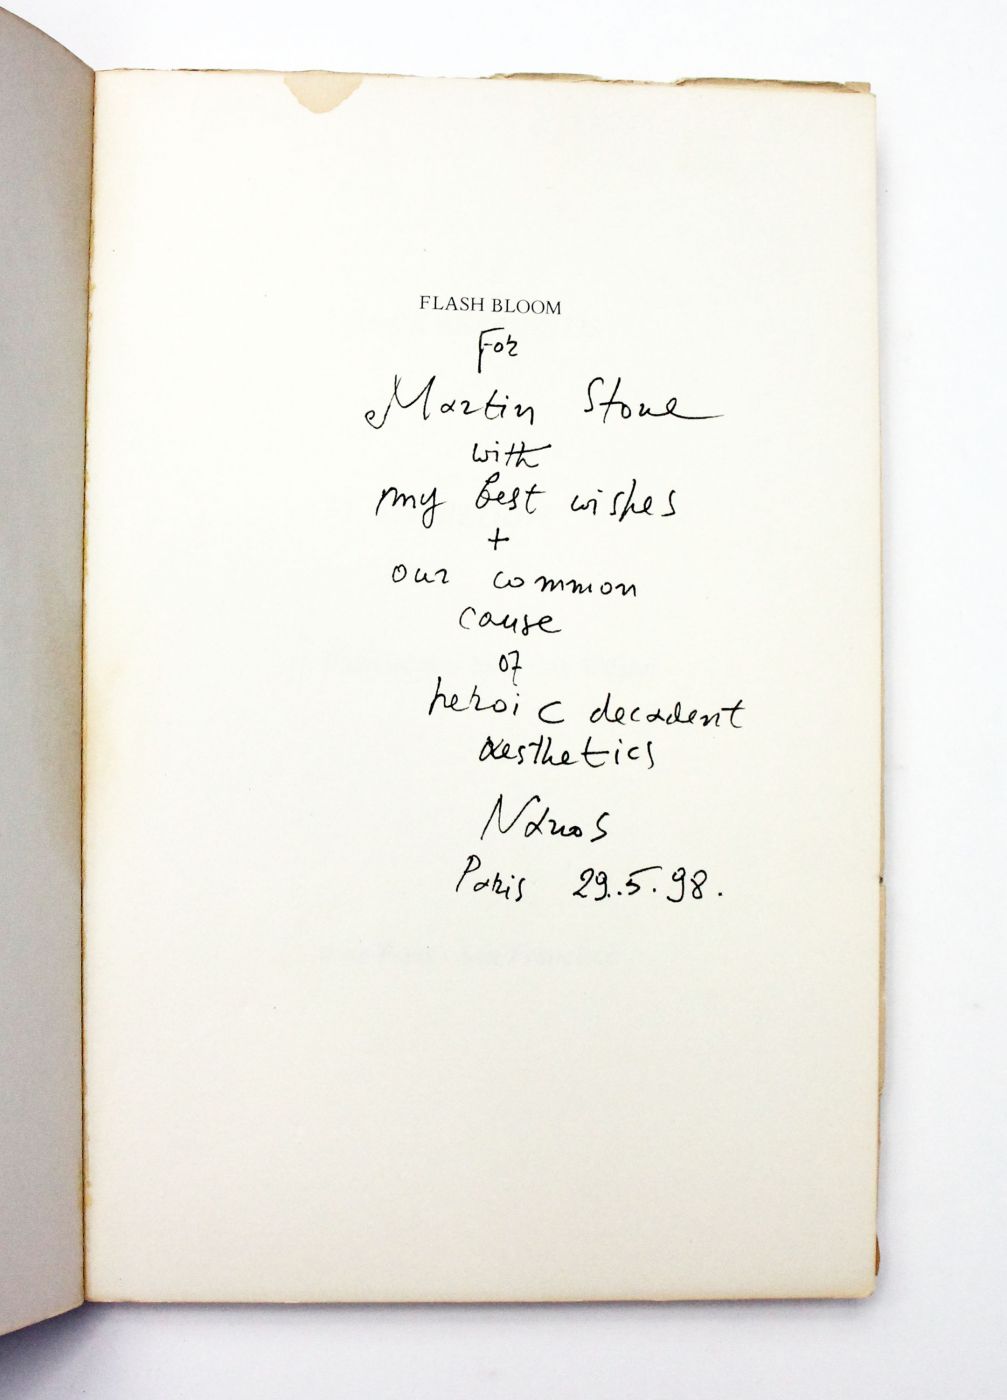 FLASH BLOOM
For
Martin Stone
with
my best wishes
+
our common
cause
of
heroic decadent
aesthetics
Nanos
Paris 29.5.98.